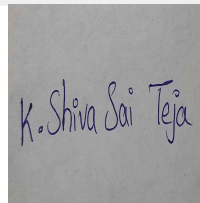 K. Shiva Sai Teja